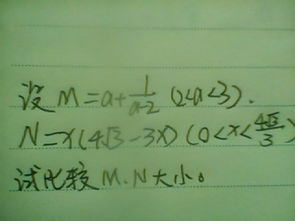 设 M=a+\frac{1}{a-2} (2<a<3).
N=x(4\sqrt{3}-3x) (0<x<\frac{4\sqrt{3}}{3})
试比较 M、N大小。